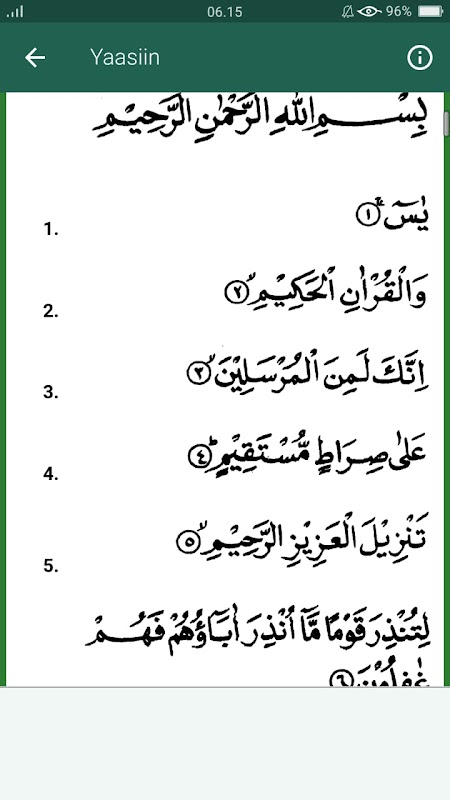 06.15 96%
Yaasiin
بِسْمِ اللّٰهِ الرَّحْمٰنِ الرَّحِيْمِ
1. يٰسٓ ۚ ١
2. وَالْقُرْاٰنِ الْحَكِيْمِۙ ٢
3. اِنَّكَ لَمِنَ الْمُرْسَلِيْنَۙ ٣
4. عَلٰى صِرَاطٍ مُّسْتَقِيْمٍۗ ٤
5. تَنْزِيْلَ الْعَزِيْزِ الرَّحِيْمِۙ ٥
لِتُنْذِرَ قَوْمًا مَّآ اُنْذِرَ اٰبَاۤؤُهُمْ فَهُمْ
غٰفِلُوْنَ ٦